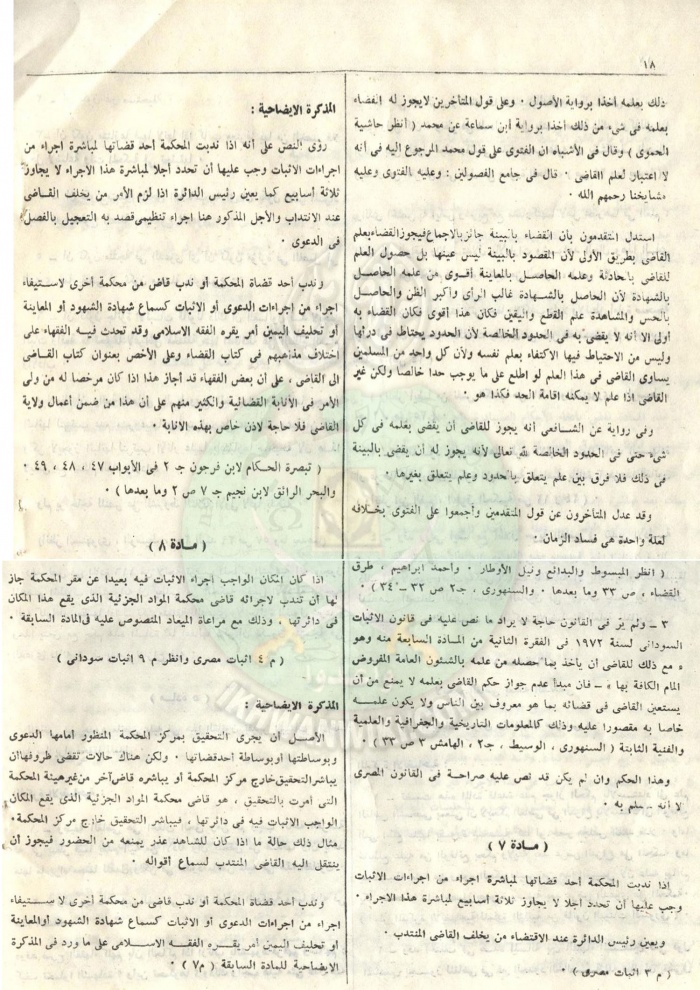 ١٨
ذلك بعلمه أخذا برواية الأصول ٠ وعلى قول المتأخرين لايجوز له القضاء
بعلمه فى شىء من ذلك أخذا برواية ابن سماعة عن محمد ( أنظر حاشية
الحموى ) وقال فى الأشباه ان الفتوى على قول محمد المرجوع اليه فى أنه
لا اعتبار لعلم القاضى ٠ قال فى جامع الفصولين : وعليه الفتوى وعليه
مشايخنا رحمهم الله ٠
استدل المتقدمون بأن القضاء بالبينة جائز بالاجماع فيجوز القضاء بعلم
القاضى بطريق الأولى لأن المقصود بالبينة ليس عينها بل حصول العلم
للقاضى بالحادثة وعلمه الحاصل بالمعاينة أقوى من علمه الحاصل
بالشهادة لأن الحاصل بالشهادة غالب الرأى وأكبر الظن والحاصل
بالحس والمشاهدة علم القطع واليقين فكان هذا أقوى فكان القضاء به
أولى الا أنه لا يقضى به فى الحدود الخالصة لأن الحدود يحتاط فى درئها
وليس من الاحتياط فيها الاكتفاء بعلم نفسه ولأن كل واحد من المسلمين
يساوى القاضى فى هذا العلم لو اطلع على ما يوجب حدا خالصا ولكن غير
القاضى اذا علم لا يمكنه إقامة الحد فكذا هو ٠
وفى رواية عن الشافعى أنه يجوز للقاضى أن يقضى بعلمه فى كل
شىء حتى فى الحدود الخالصة لله تعالى لأنه يجوز له أن يقضى بالبينة
فى ذلك فلا فرق بين علم يتعلق بالحدود وعلم يتعلق بغيرها ٠
وقد عدل المتأخرون عن قول المتقدمين وأجمعوا على الفتوى بخلافه
لعلة واحدة هى فساد الزمان ٠
( انظر المبسوط والبدائع ونيل الأوطار ٠ وأحمد ابراهيم ، طرق
القضاء ، ص ٣٣ وما بعدها ٠ والسنهورى ، جـ٢ ص ٣٢ ـ ٣٤ ) ٠
٣ ـ ولم ير فى القانون حاجة لا يراد ما نص عليه فى قانون الاثبات
السودانى لسنة ١٩٧٢ فى الفقرة الثانية من المادسة السابعة منه وهو
« مع ذلك للقاضى أن يأخذ بما حصله من علمه بالشئون العامة المفروض
المام الكافة بها » ـ فان مبدأ عدم جواز حكم القاضى بعلمه لا يمنع من أن
يستعين القاضى فى قضائه بما هو معروف بين الناس ولا يكون علمه
خاصا به مقصورا عليه وذلك كالمعلومات التاريخية والجغرافية والعلمية
والفنية الثابتة ( السنهورى ، الوسيط ، جـ٢ ، الهامش ٣ ص ٣٣ ) ٠
وهذا الحكم وان لم يكن قد نص عليه صراحة فى القانون المصرى
الا أنه مسلم به ٠
( مادة ٧ )
إذا ندبت المحكمة أحد قضاتها لمباشرة اجراء من اجراءات الاثبات
وجب عليها أن تحدد أجلا لا يجاوز ثلاثة أسابيع لمباشرة هذا الاجراء ٠
ويعين رئيس الدائرة عند الاقتضاء من يخلف القاضى المنتدب ٠
( م ٣ اثبات مصرى ) ٠
المذكرة الايضاحية :
رؤى النص على أنه اذا ندبت المحكمة أحد قضاتها لمباشرة اجراء من
اجراءات الاثبات وجب عليها أن تحدد أجلا لمباشرة هذا الأجراء لا يجاوز
ثلاثة أسابيع كما يعين رئيس الدائرة اذا لزم الأمر من يخلف القاضى
عند الانتداب والأجل المذكور هنا اجراء تنظيمى قصد به التعجيل بالفصل
فى الدعوى ٠
وندب أحد قضاة المحكمة أو ندب قاض من محكمة أخرى لاستيفاء
اجراء من اجراءات الدعوى أو الاثبات كسماع شهادة الشهود أو المعاينة
أو تحليف اليمين أمر يقره الفقه الاسلامى وقد تحدث فيه الفقهاء على
اختلاف مذاهبهم فى كتاب القضاء وعلى الأخص بعنوان كتاب القاضى
الى القاضى ، على أن بعض الفقهاء قد أجاز هذا اذا كان مرخصا له من ولى
الأمر فى الأنابة القضائية والكثير منهم على أن هذا من ضمن أعمال ولاية
القاضى فلا حاجة لاذن خاص بهذه الانابة ٠
( تبصرة الحكام لابن فرجون جـ ٢ فى الأبواب ٤٧ ، ٤٨ ، ٤٩ ٠
والبحر الرائق لابن نجيم جـ ٧ ص ٢ وما بعدها ) ٠
( مادة ٨ )
اذا كان المكان الواجب اجراء الاثبات فيه بعيدا عن مقر المحكمة جاز
لها أن تندب لاجرائه قاضى محكمة المواد الجزئية الذى يقع هذا المكان
فى دائرتها ، وذلك مع مراعاة الميعاد المنصوص عليه فى المادة السابقة ٠
( م ٤ اثبات مصرى وانظر م ٩ اثبات سودانى ) ٠
المذكرة الايضاحية :
الأصل أن يجرى التحقيق بمركز المحكمة المنظور أمامها الدعوى
وبوساطتها أو بوساطة أحد قضاتها ٠ ولكن هناك حالات تقضى ظروفها أن
يباشر التحقيق خارج مركز المحكمة أو يباشره قاض آخر من غير هيئة المحكمة
التى أمرت بالتحقيق ، هو قاضى محكمة المواد الجزئية الذى يقع المكان
الواجب الاثبات فيه فى دائرتها ، فيباشر التحقيق خارج مركز المحكمة ٠
مثال ذلك حالة ما اذا كان للشاهد عذر يمنعه من الحضور فيجوز أن
ينتقل اليه القاضى المنتدب لسماع أقواله ٠
وندب أحد قضاة المحكمة أو ندب قاضى من محكمة أخرى لاستيفاء
اجراء من اجراءات الدعوى أو الاثبات كسماع شهادة الشهود أو المعاينة
أو تحليف اليمين أمر يقره الفقه الاسلامى على ما ورد فى المذكرة
الايضاحية للمادة السابقة ( م٧ ) ٠